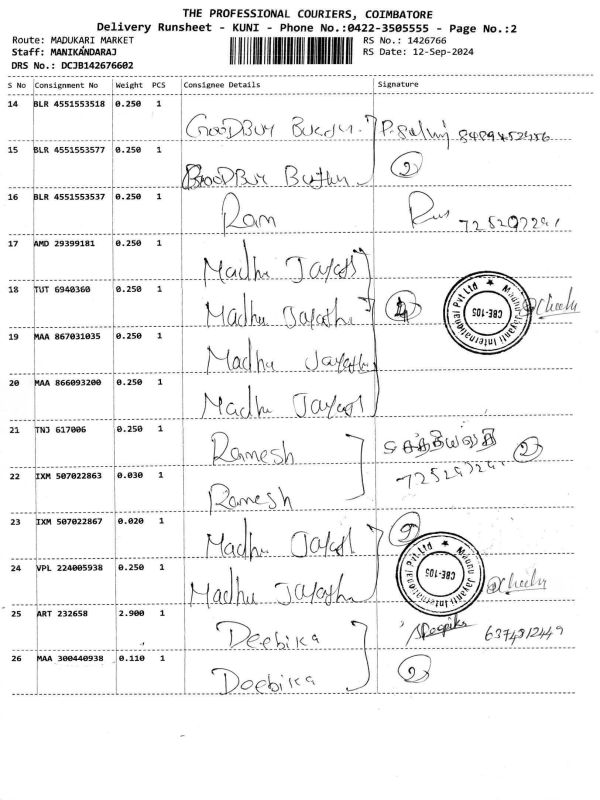 THE PROFESSIONAL COURIERS, COIMBATORE
Delivery Runsheet - KUNI - Phone No.:0422-3505555 - Page No.:2
Route: MADUKARI MARKET RS No.: 1426766
Staff: MANIKANDARAJ RS Date: 12-Sep-2024
DRS No.: DCJB142676602
S No Consignment No Weight PCS Consignee Details Signature
14 BLR 4551553518 0.250 1
15 BLR 4551553577 0.250 1 2
16 BLR 4551553537 0.250 1 Ram
17 AMD 29399181 0.250 1 Madhu
18 TUT 6940360 0.250 1 Madhu 4
Madhu Jayanti International Pvt Ltd ★ CBE-105
19 MAA 867031035 0.250 1 Madhu
20 MAA 866093200 0.250 1 Madhu
21 TNJ 617006 0.250 1 Ramesh 2
22 IXM 507022863 0.030 1 Ramesh
23 IXM 507022867 0.020 1 Madhu
24 VPL 224005938 0.250 1 Madhu
Madhu Jayanti International Pvt Ltd ★ CBE-105
25 ART 232658 2.900 1 Deebika 6374312449
26 MAA 300440938 0.110 1 Deebika 2